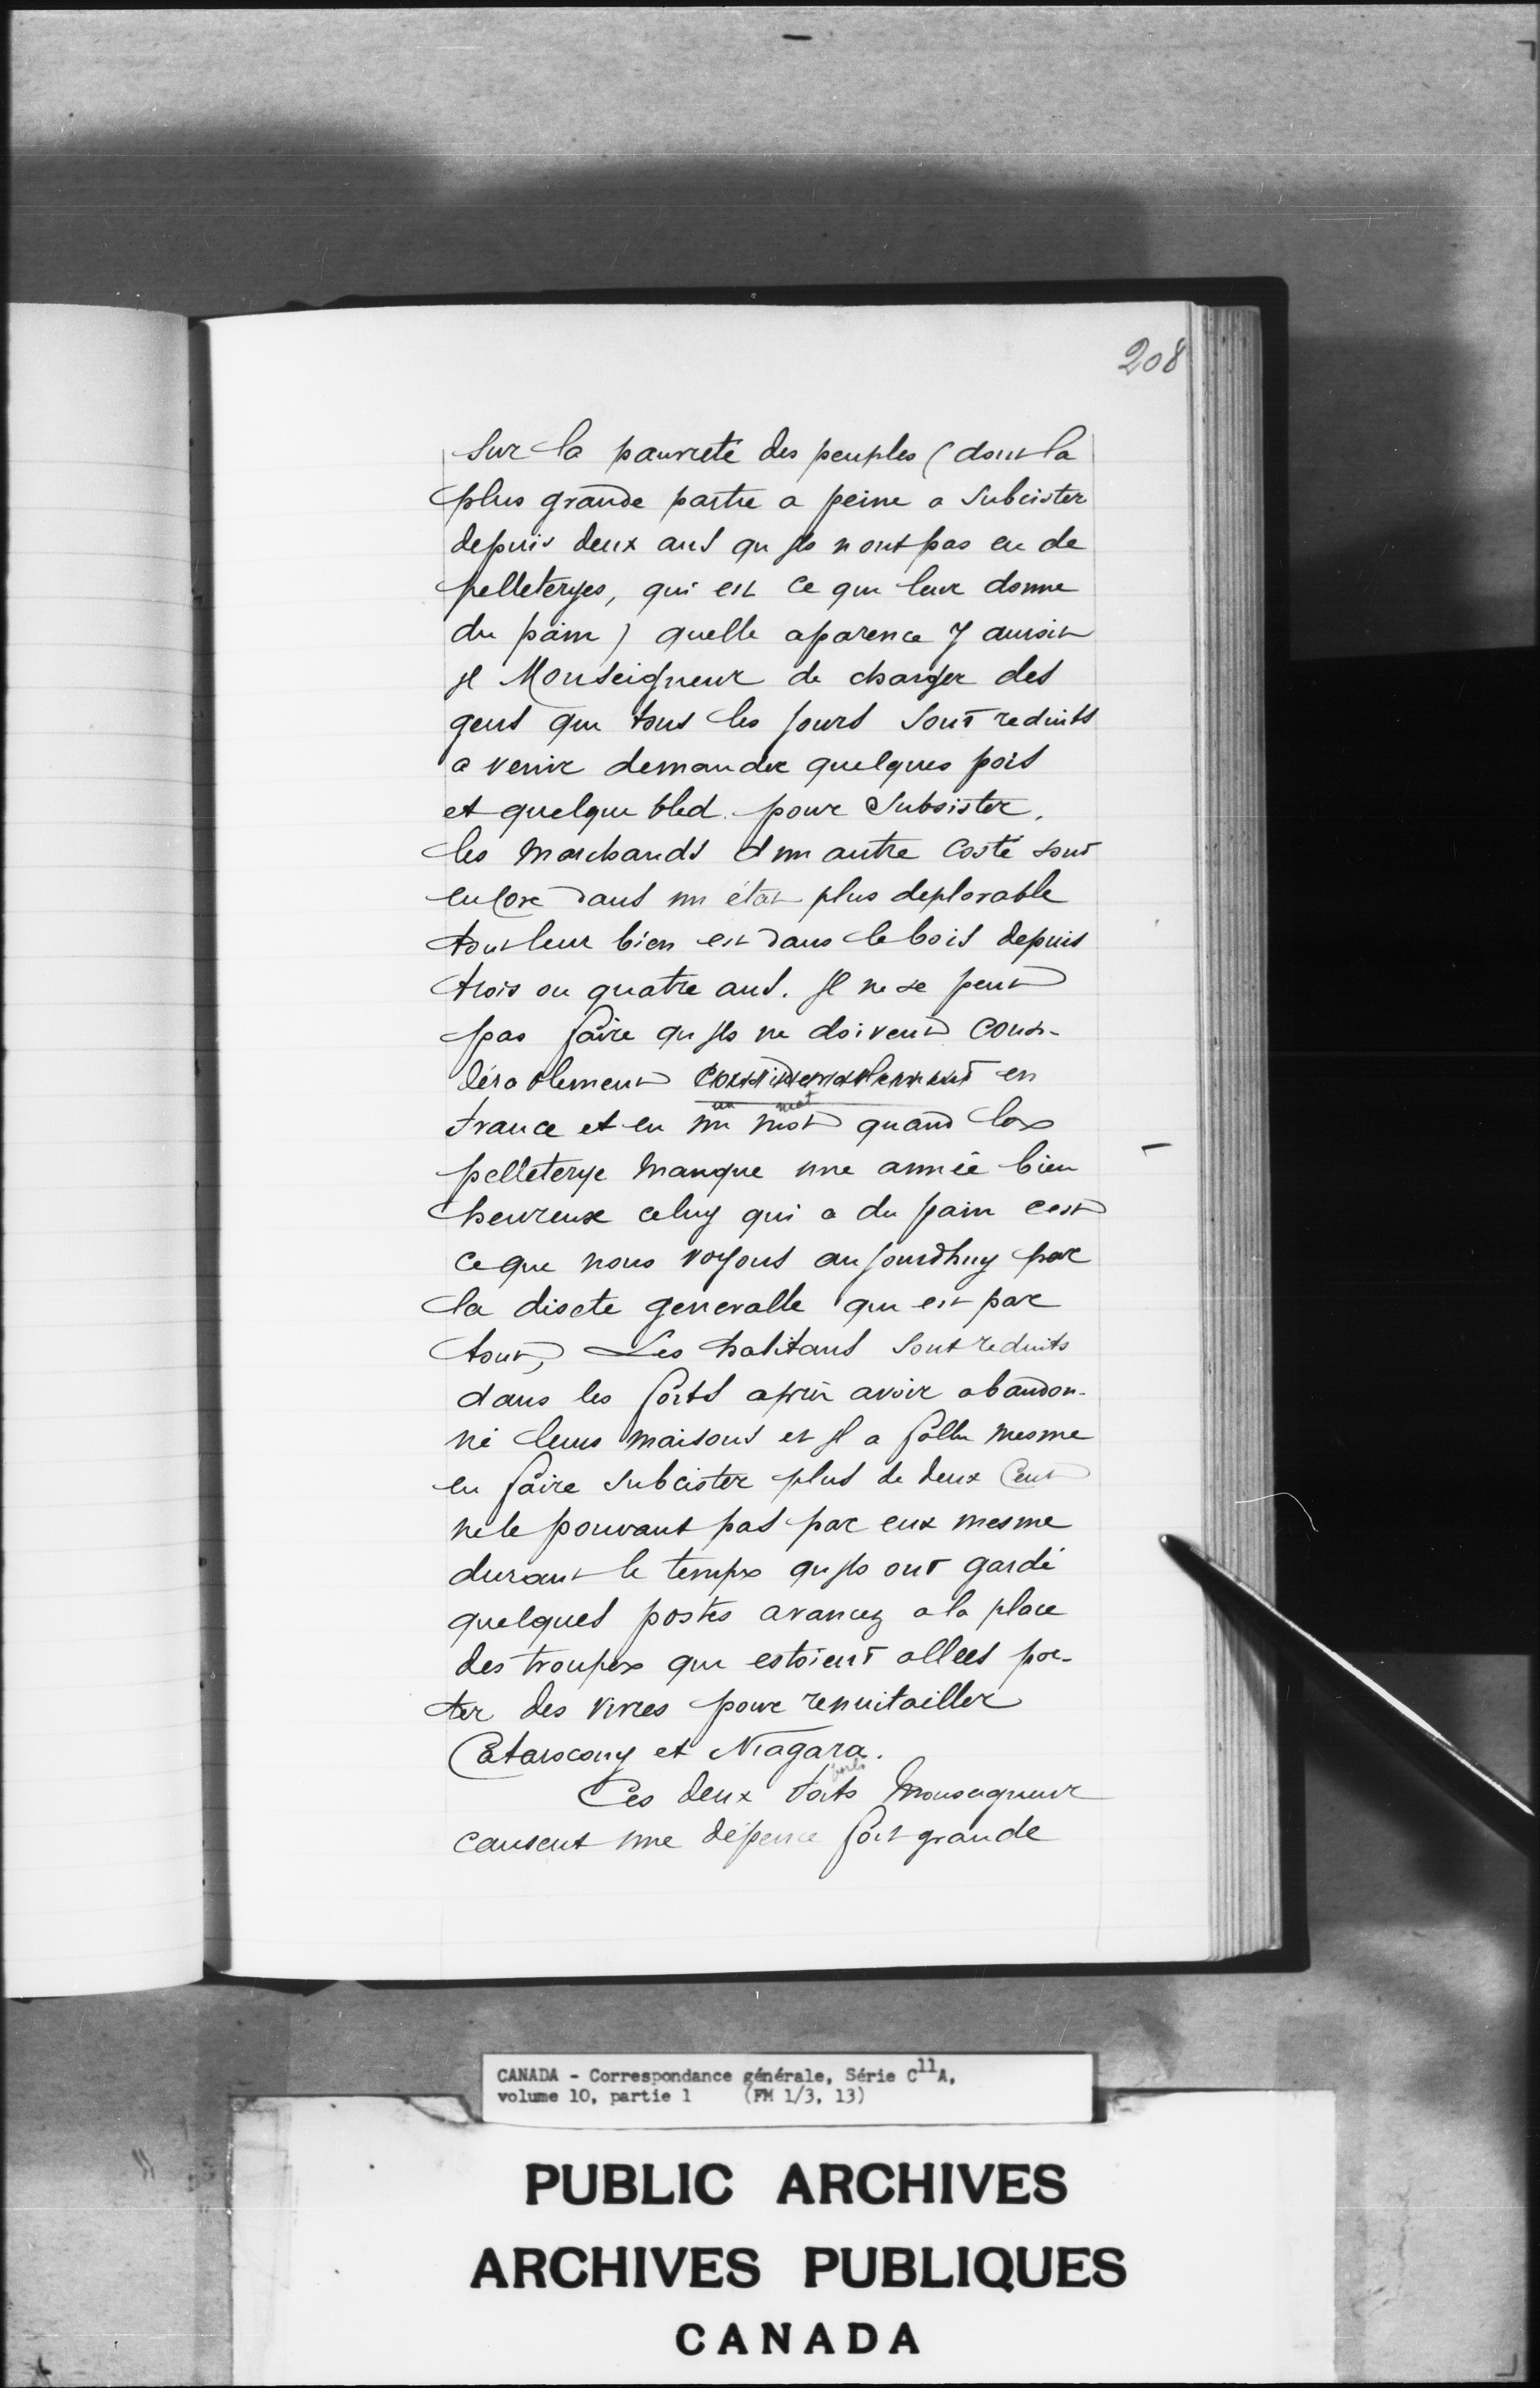 208
Sur la pauvreté des peuples (dont la
plus grande partie a peine a Subcister
depuis deux ans qu jls n ont pas eu de
pelleteryes, qui est ce qui leur donne
du pain) quelle aparence y auroit
jl Monseigneur de charger des
gens qui tous les jours Sont reduits
a venir demander quelques pois
et quelque bled pour Subsister.
les Marchands d un autre Costé sont
encore dans un état plus deplorable
tout leur bien est dans le bois depuis
trois ou quatre ans. Jl ne se peut
pas faire qu jls ne doivent consi-
dérablement considerablement en
un mot
france et en un mot quand la
pelleterye Manque une année bien
heureux celuy qui a du pain cest
ce que nous voyons aujourdhuy par
la disete generalle qui est par
tout, Les habitans Sont reduits
dans les forts après avoir abandon-
né leurs maisons et jl a fallu mesme
en faire subcister plus de deux Cent
ne le pouvant pas par eux mesme
durant le temps qu jls ont gardé
quelques postes avancez a la place
des troupes qui estoient allees por-
ter des vivres pour renvitailler
Catarocouy et Niagara.
forts
Ces deux forts Monseigneur
causent une dépence fort grande
CANADA - Correspondance générale, Série C11A,
volume 10, partie 1 (FM 1/3, 13)
PUBLIC ARCHIVES
ARCHIVES PUBLIQUES
CANADA